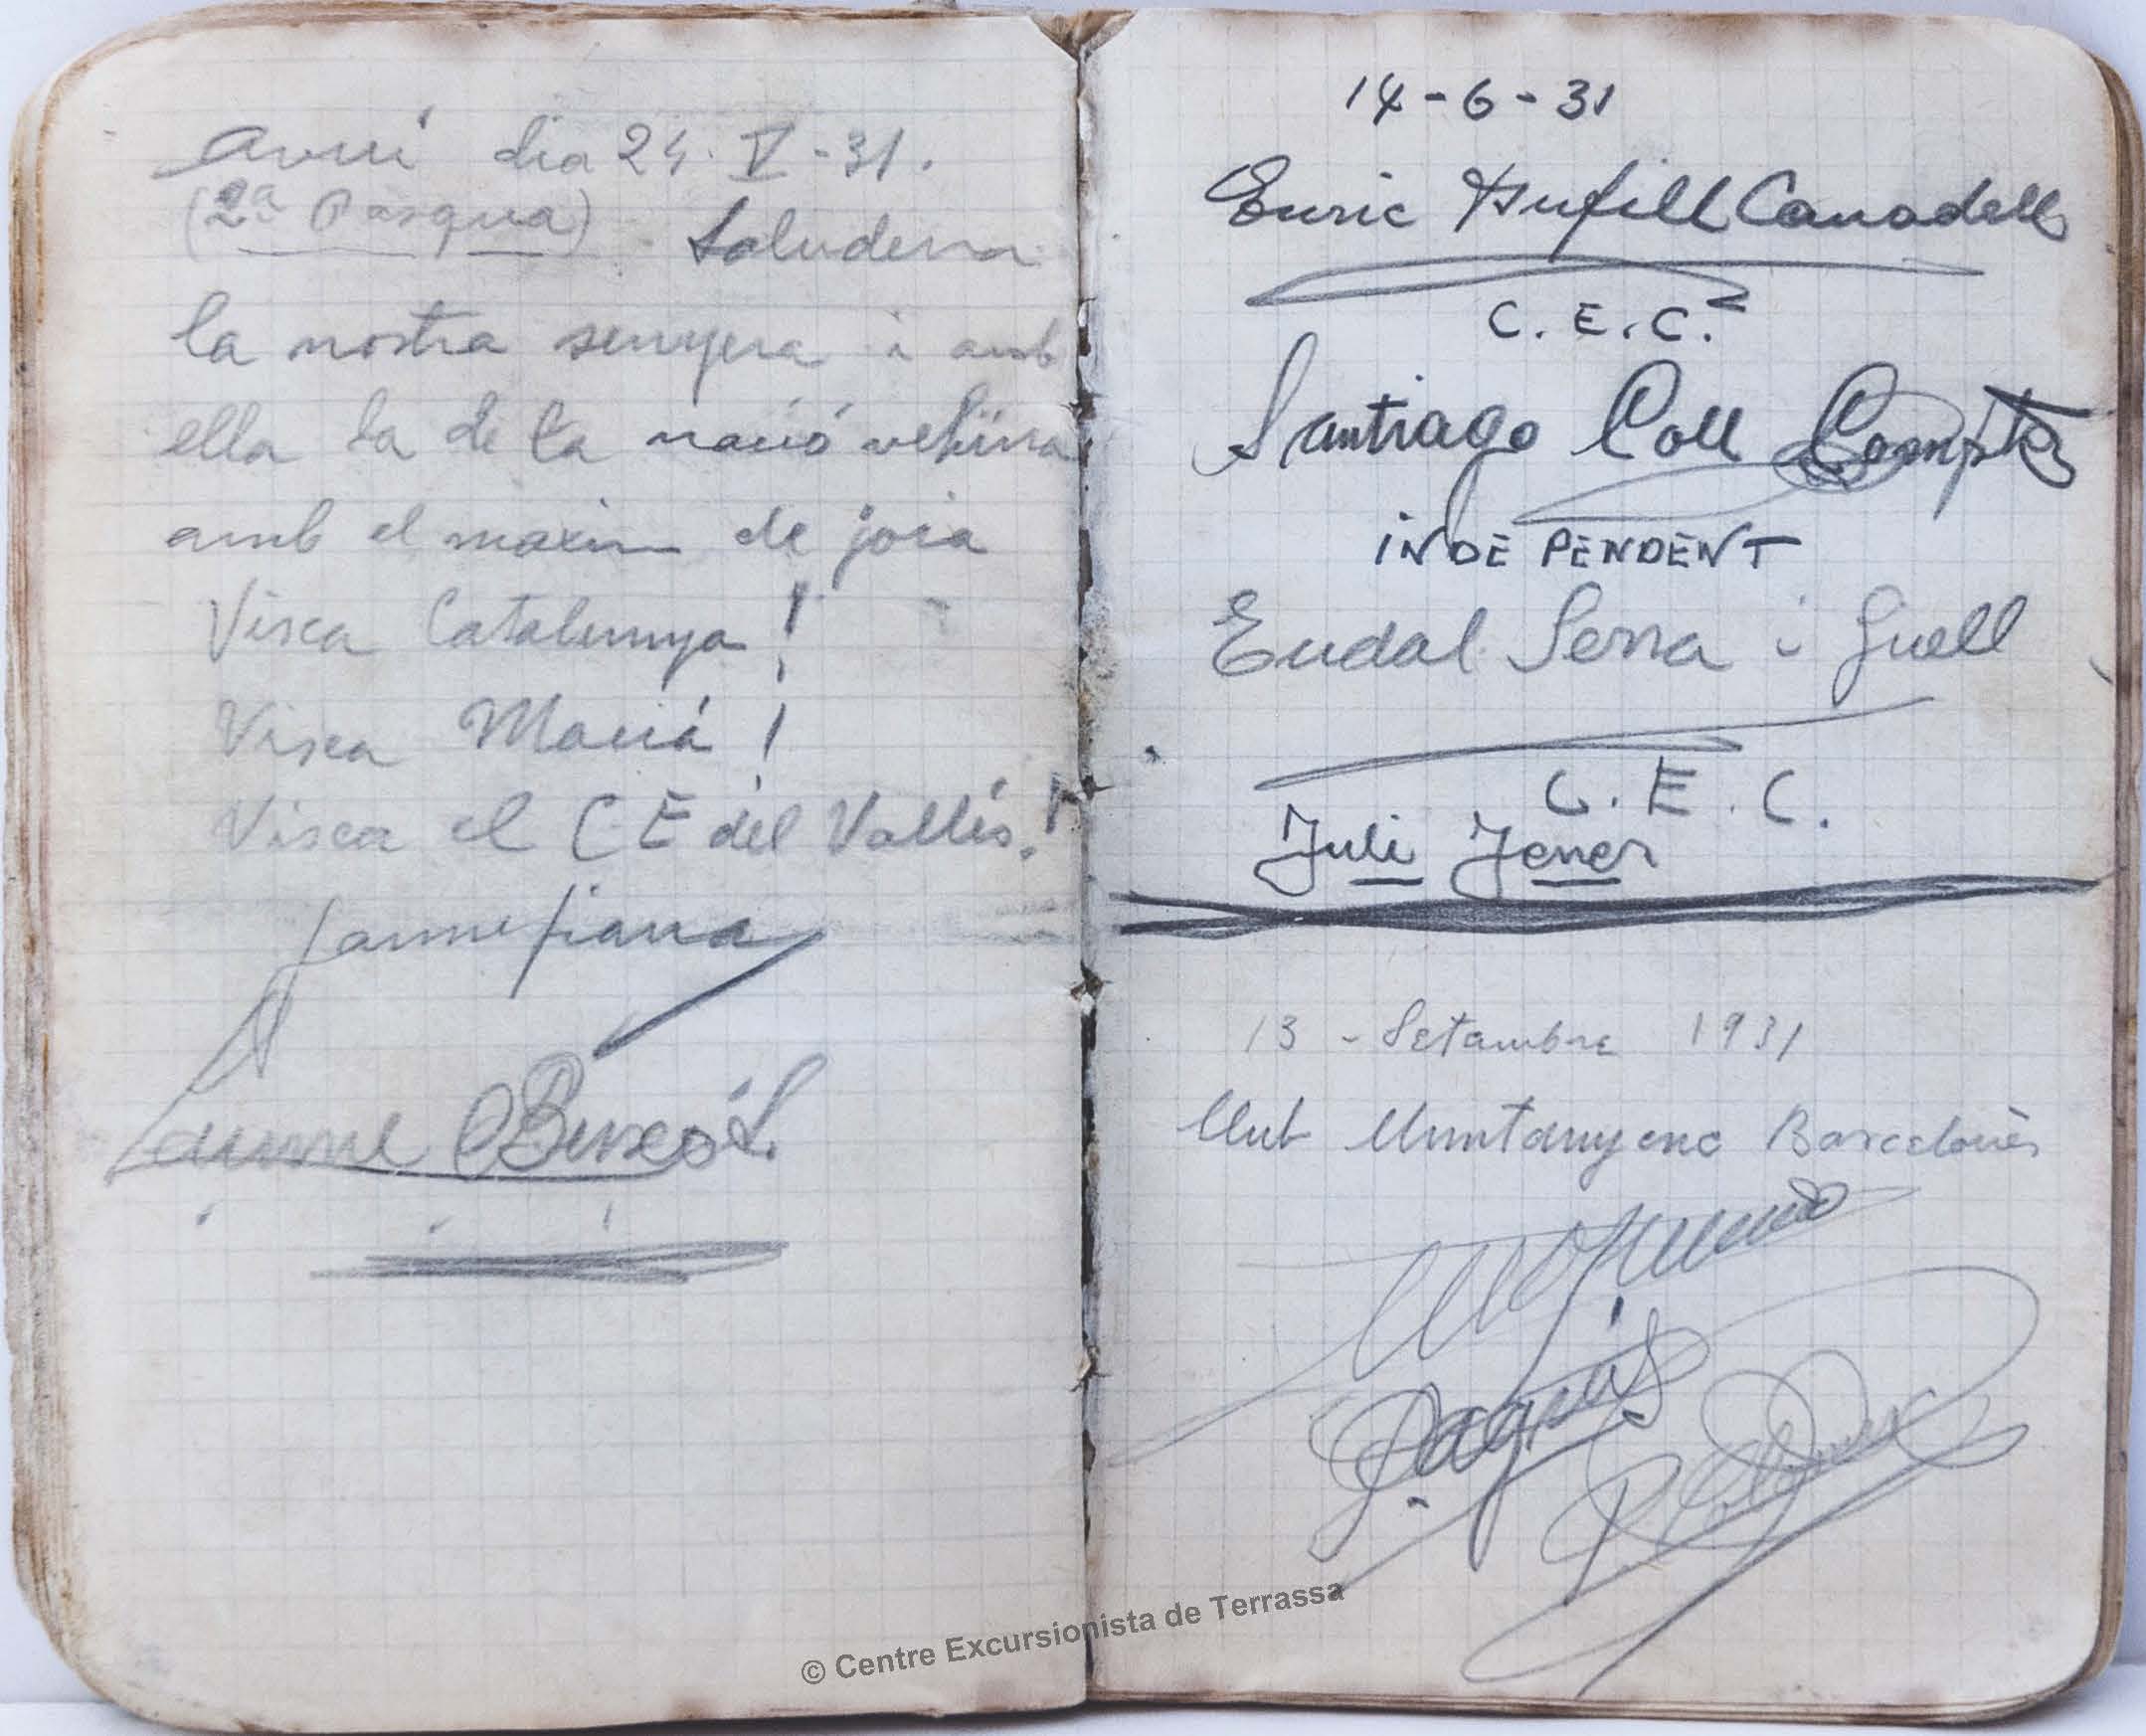 Avui dia 24. V-31.
(2ª Pasqua) Saludem
la nostra senyera i amb
ella la de la nació vehïna
amb el maxim de joia
Visca Catalunya!
Visca Macià!
Visca el C E del Vallès!
Jaume
Jaume
14-6-31
Enric Canadell
C.E.C.
Santiago Coll Compte
INDEPENDENT
Eudal Serra i Guell
C.E.C.
Juli Jener
13 - Setambre 1931
Club Muntanyenc Barcelonès
Pagès
© Centre Excursionista de Terrassa